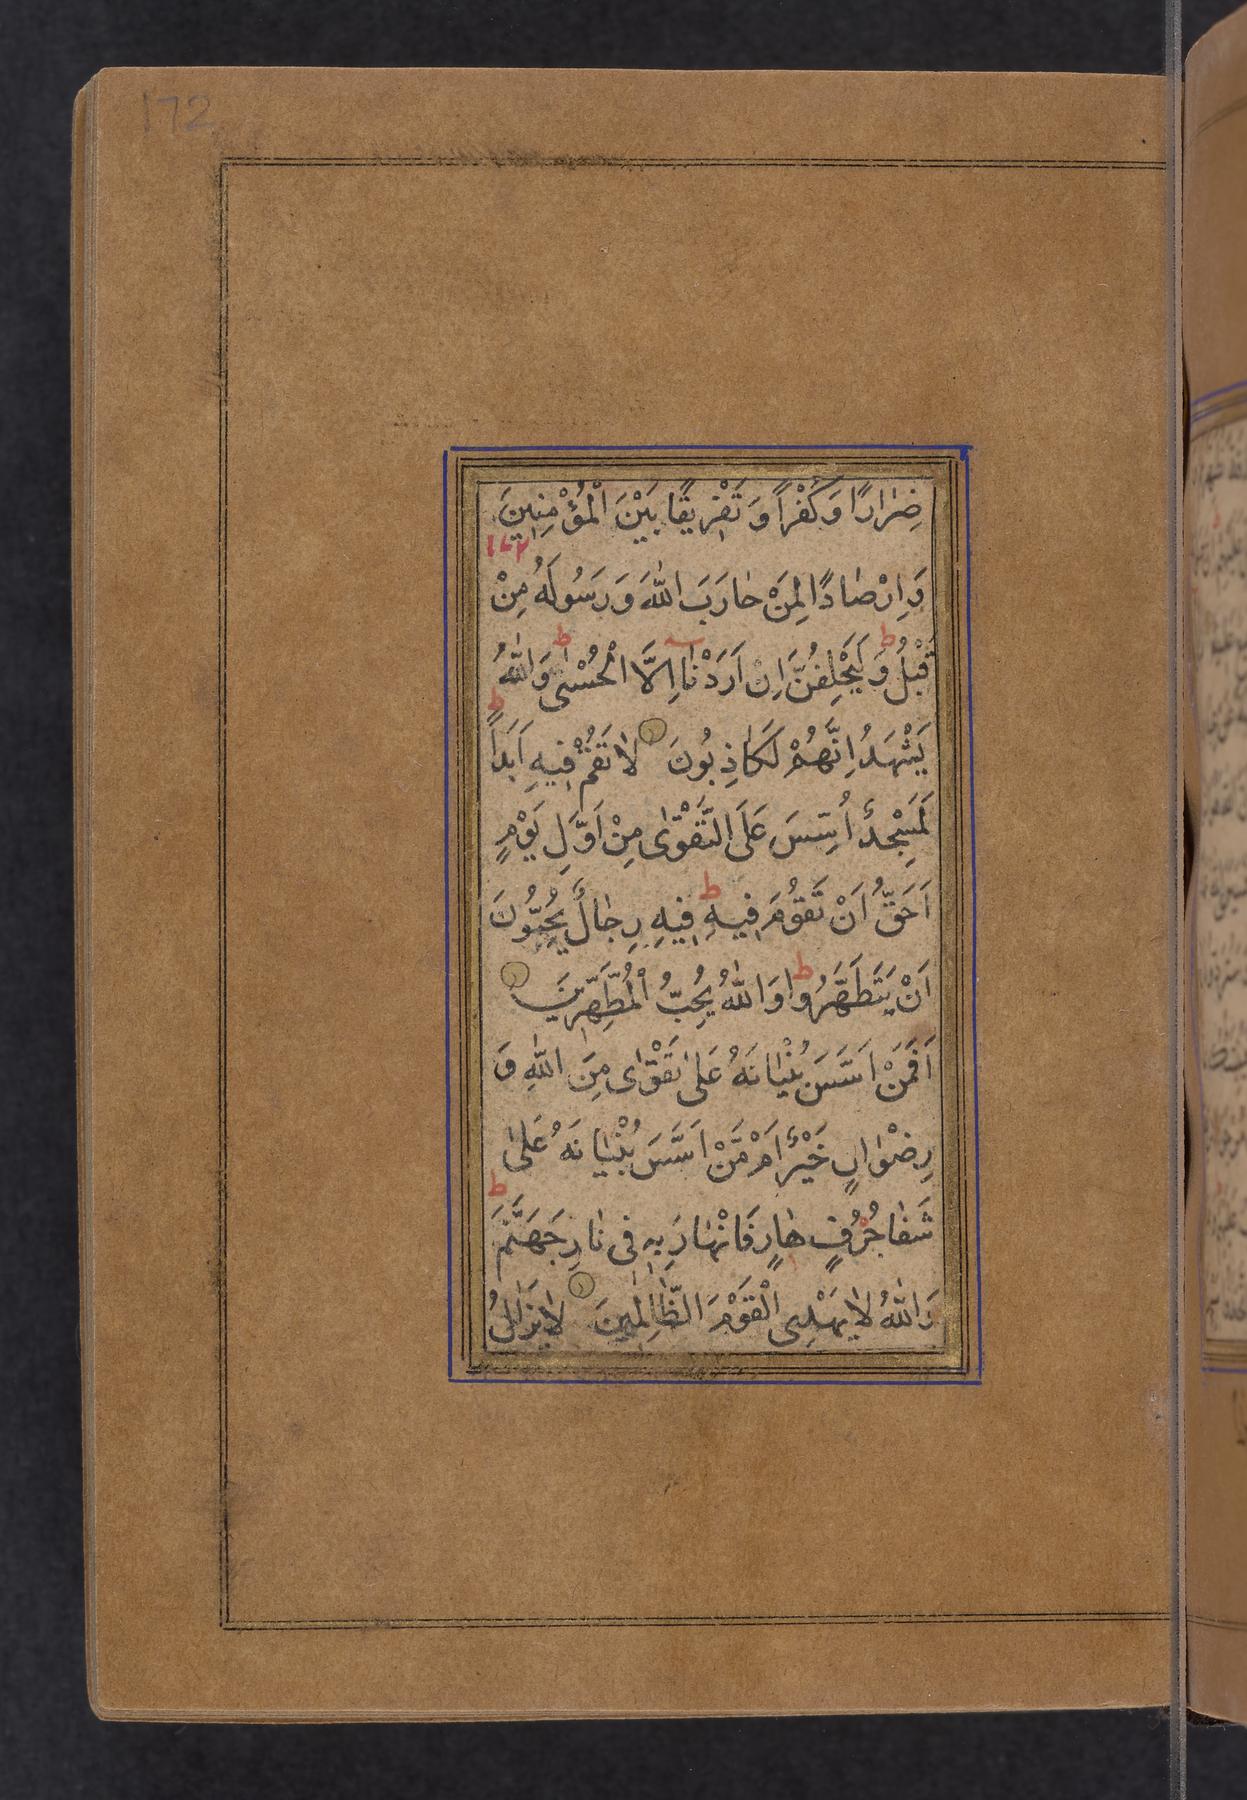 172
ضِرٰارًا وَكُفْرًا وَ تَفْرِيقًا بَيْنَ الْمُؤْمِنِينَ
۱۷۲
وَاِرْصٰادًا لِمَنْ حٰارَبَ اللّٰهَ وَ رَسُولَهُ مِنْ
قَبْلُ ط وَ لَيَحْلِفُنَّ اِنْ اَرَدْنٰا اِلَّا الْحُسْنٰى ط وَاللّٰهُ
يَشْهَدُ اِنَّهُمْ لَكٰاذِبُونَ لٰا تَقُمْ فِيهِ اَبَدًا ط
لَمَسْجِدٌ اُسِّسَ عَلَى التَّقْوٰى مِنْ اَوَّلِ يَوْمٍ
اَحَقُّ اَنْ تَقُومَ فِيهِ ط فِيهِ رِجٰالٌ يُحِبُّونَ
اَنْ يَتَطَهَّرُوا ط وَاللّٰهُ يُحِبُّ الْمُطَّهِّرِينَ
اَفَمَنْ اَسَّسَ بُنْيٰانَهُ عَلٰى تَقْوٰى مِنَ اللّٰهِ وَ
رِضْوٰانٍ خَيْرٌ اَمْ مَنْ اَسَّسَ بُنْيٰانَهُ عَلٰى
شَفٰا جُرُفٍ هٰارٍ فَانْهٰارَ بِهِ فى نٰارِ جَهَنَّمَ ط
وَاللّٰهُ لٰا يَهْدِى الْقَوْمَ الظّٰالِمِينَ لٰا يَزٰالُ